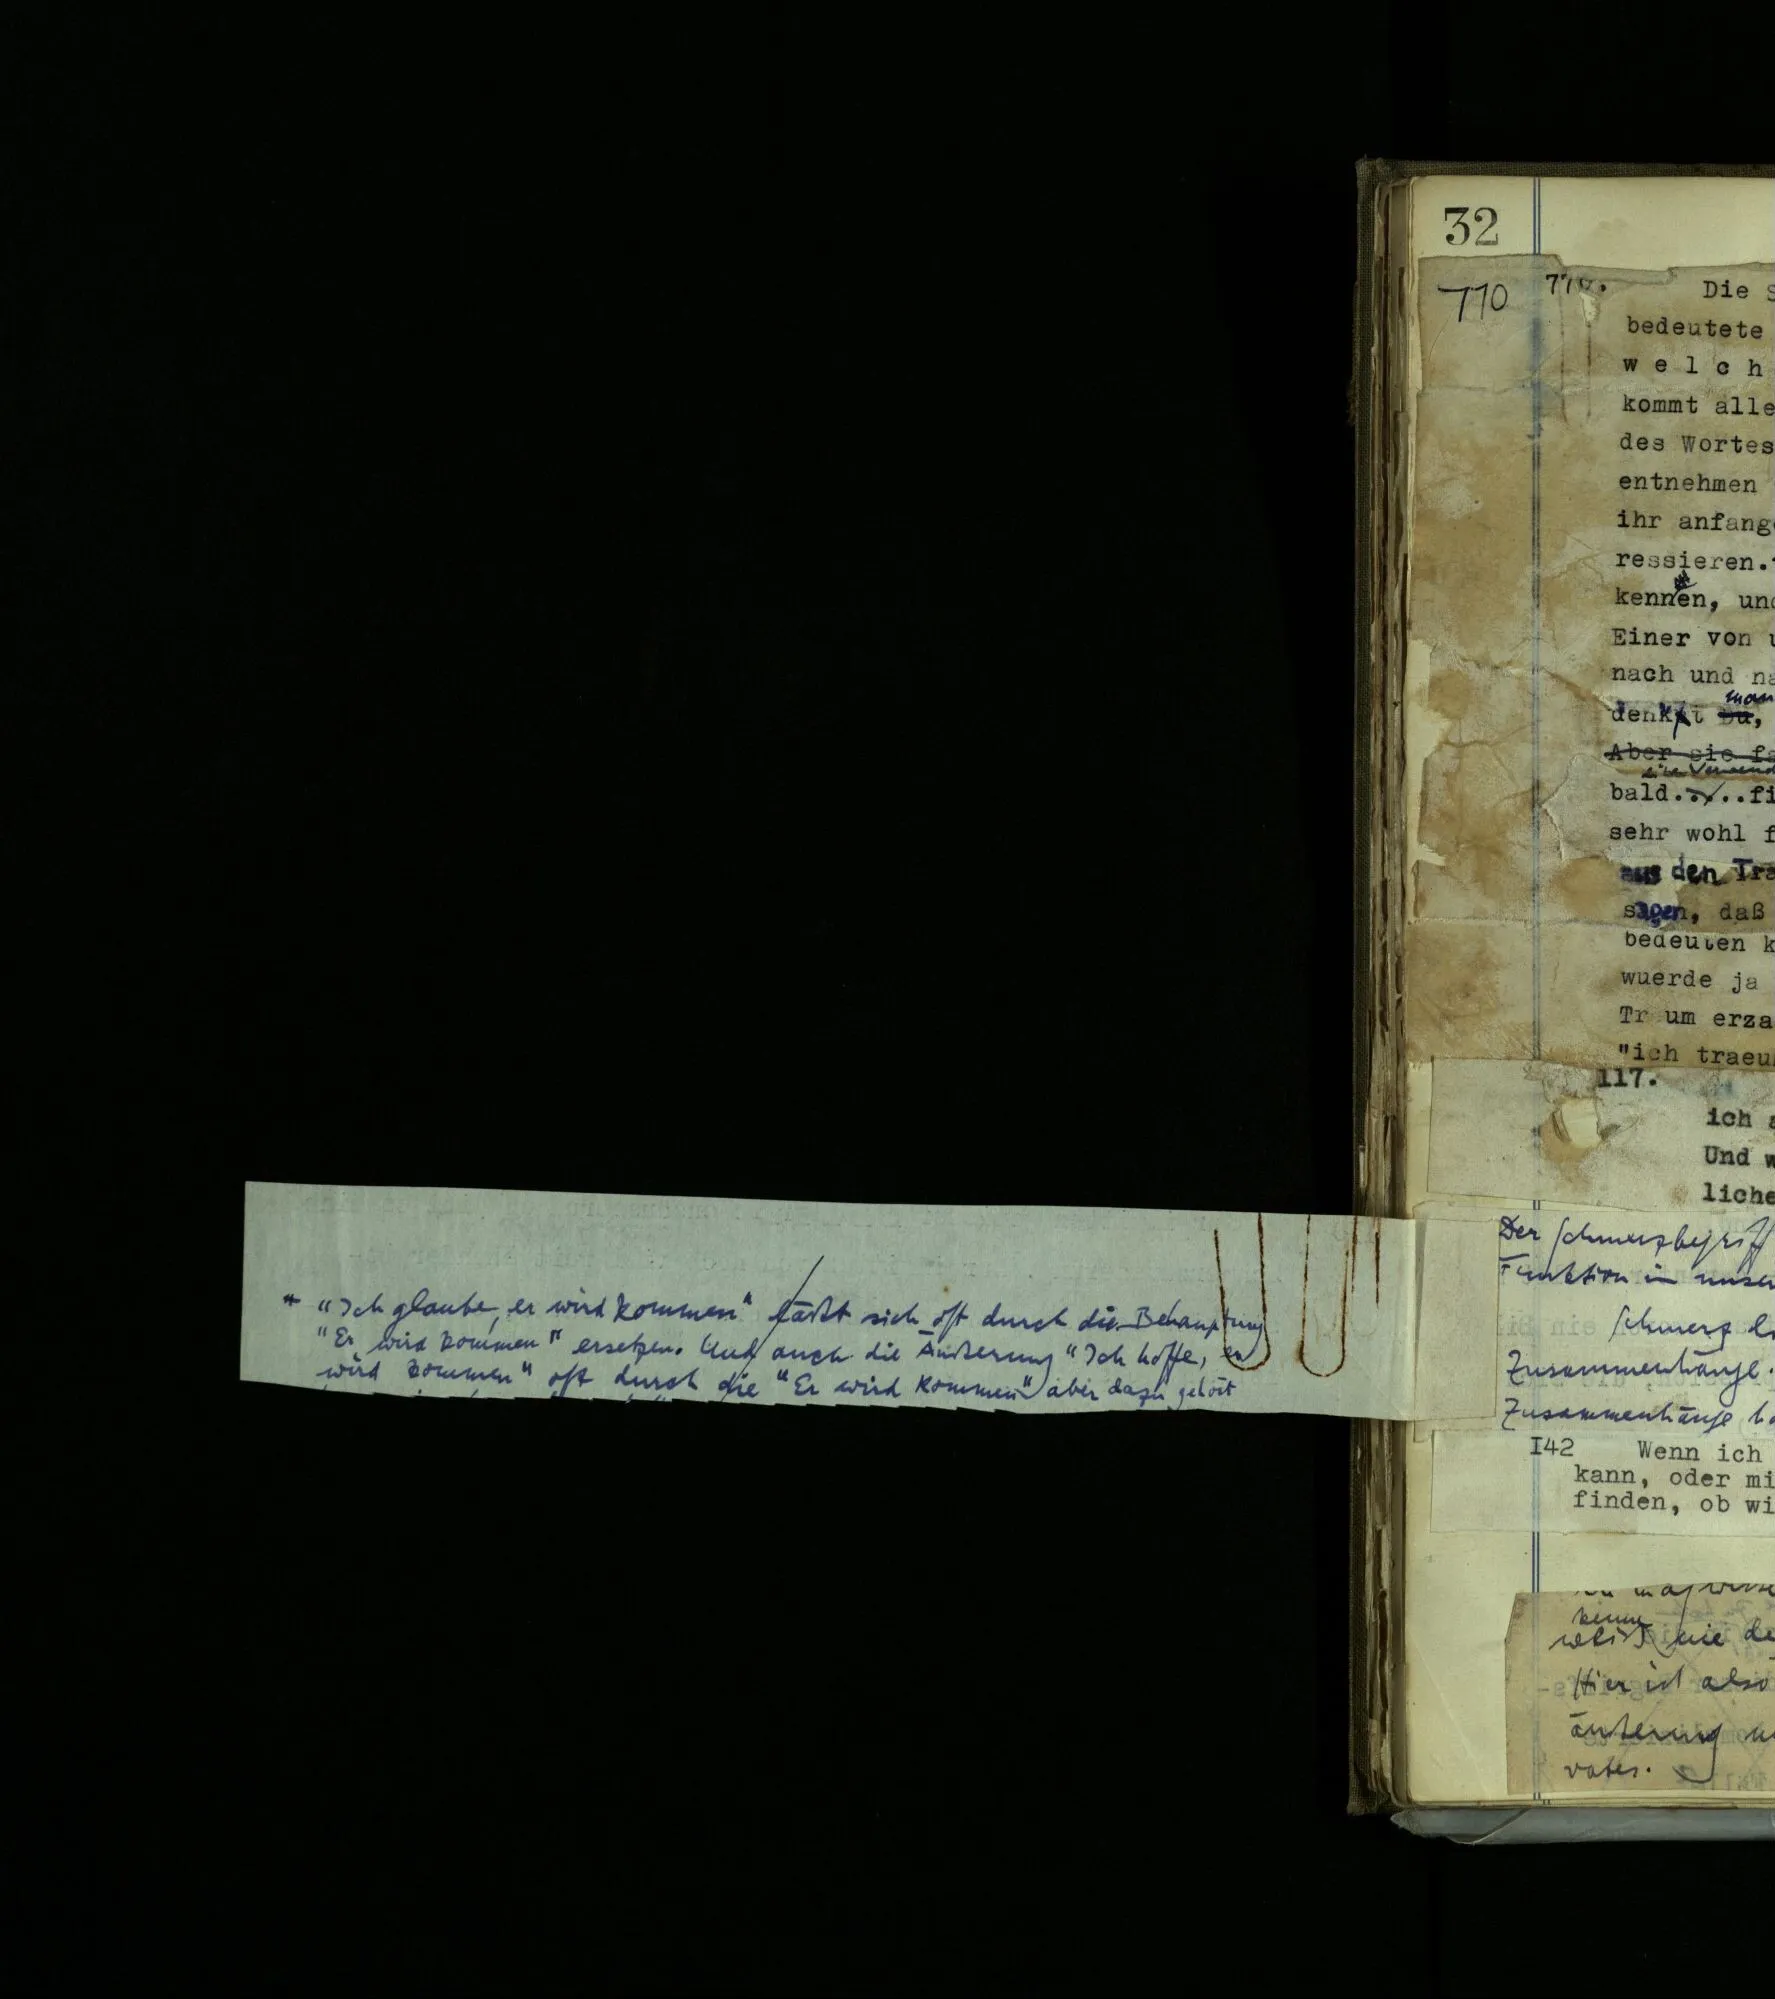 32
770 770. Die S
bedeutete
w e l c h
kommt alle
des Wortes
entnehmen
ihr anfang
ressieren.
kennen, und
Einer von u
nach und na
man
denkt Du,
Aber sie fa
eine Verwend
bald.....fi
sehr wohl f
aus den Tra
sagen, daß
bedeuten k
wuerde ja
Tr um erza
"ich traeu
117.
ich a
Und w
liche
* "Ich glaube, er wird kommen" läßt sich oft durch die Behauptung
"Er wird kommen" ersetzen. Und auch die Äußerung "Ich hoffe, er
wird kommen" oft durch die "Er wird kommen" aber dazu gehört
Der Schmerzbegriff
Funktion in unser
Schmerz
Zusammenhänge.
Zusammenhänge
142 Wenn ich
kann, oder mi
finden, ob wi
kenne
weiß, wie de
Hier ist also
äußerung